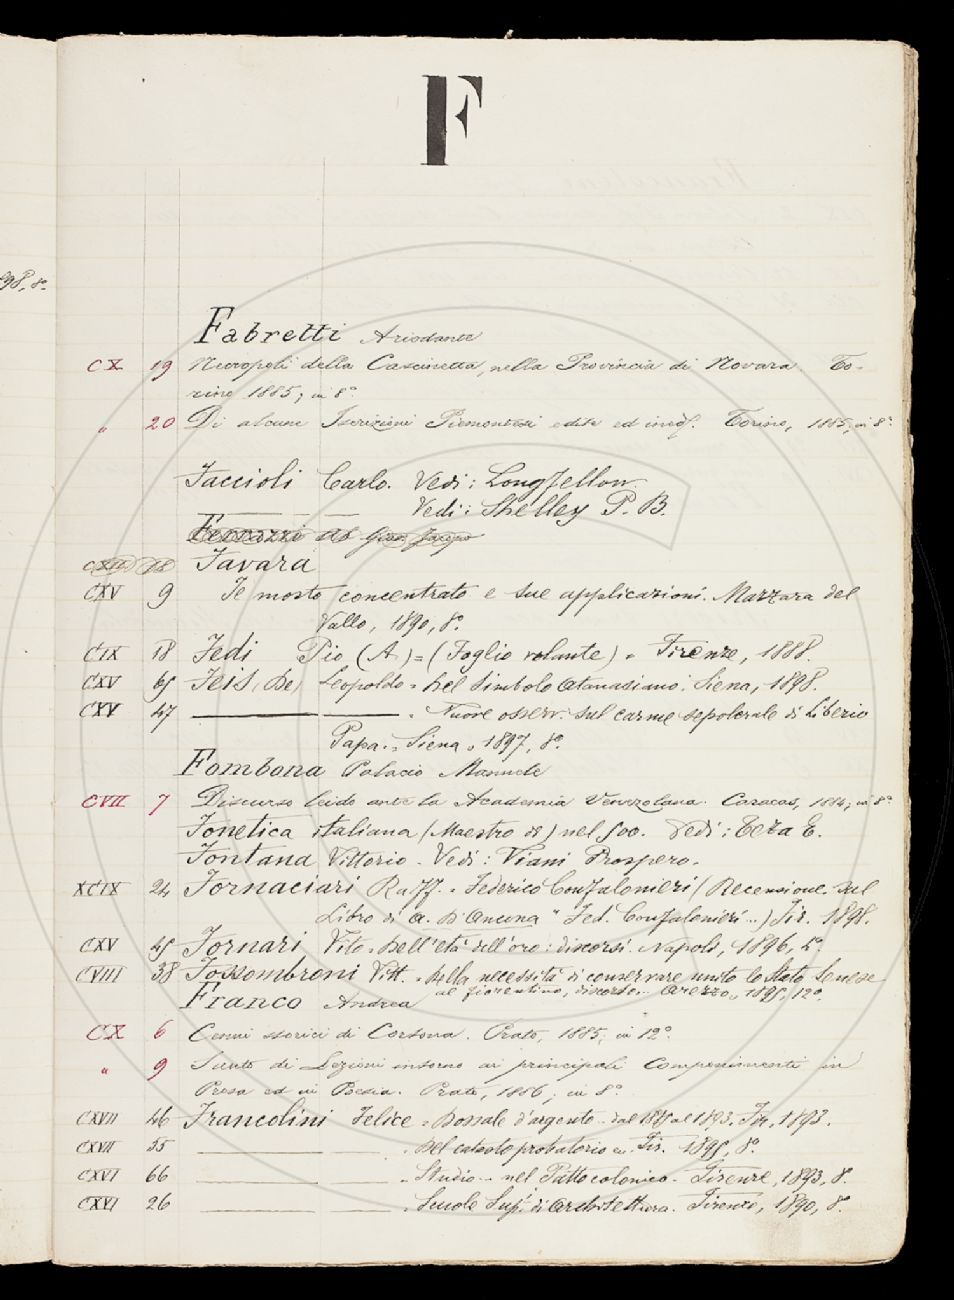 F
98, 8º
Fabretti Ariodante
CX 19 Necropoli della Cascinetta, nella Provincia di Novara. To-
rino 1885; in 8º
" 20 Di alcune Iscrizioni Piemontesi edite ed ined. Torino, 1885; in 8º
Faccioli Carlo. Vedi: Longfellow
Vedi: Shelley P. B.
Ferrazzi Ab Jacopo
18 Favara
CXV 9 Il mosto concentrato e sue applicazioni. Mazzara del
Vallo, 1890, 8º.
CIX 18 Fedi Pio (A) = (Foglio volante) - Firenze, 1888.
CXV 65 Feis (De) Leopoldo - Del Simbolo Atanasiano. Siena, 1898.
CXV 47 - Nuove osserv. sul carme sepolcrale di Liberio
Papa. - Siena - 1897, 8º.
Fombona Palacio Manuele
CVII 7 Discurso leido ante la Academia Venezolana. Caracas, 1884; in 8º
Fonetica italiana (Maestro di) nel 500. Vedi: Teza E.
Fontana Vittorio - Vedi: Viani Prospero.
XCIX 24 Fornaciari Raff. - Federico Confalonieri (Recensione sul
Libro di A. D'Ancona "Fed. Confalonieri..) Fir. 1898.
CXV 45 Fornari Vito - Dell'età dell'oro: discorsi. Napoli, 1896, 4º.
CVIII 38 Fossombroni Vitt. - Della necessità di conservare unito lo Stato Senese
al fiorentino, discorso... Arezzo, 1895, 12º.
Franco Andrea
CX 6 Cenni storici di Corsona. Prato, 1885; in 12º
" 9 Sunto di Lezioni intorno ai principali Componimenti in
Prosa ed in Poesia. Prato, 1886; in 8º
CXVII 46 Francolini Felice - Dossale d'argento - dal 1845 al 1893. Fir, 1893.
CXVII 55 - Del catasto probatorio Fir. 1895, 8º.
CXVI 66 - Studio... nel Patto colonico - Firenze, 1893, 8.
CXVI 26 - Scuole Sup. di Architettura. Firenze, 1890, 8º.